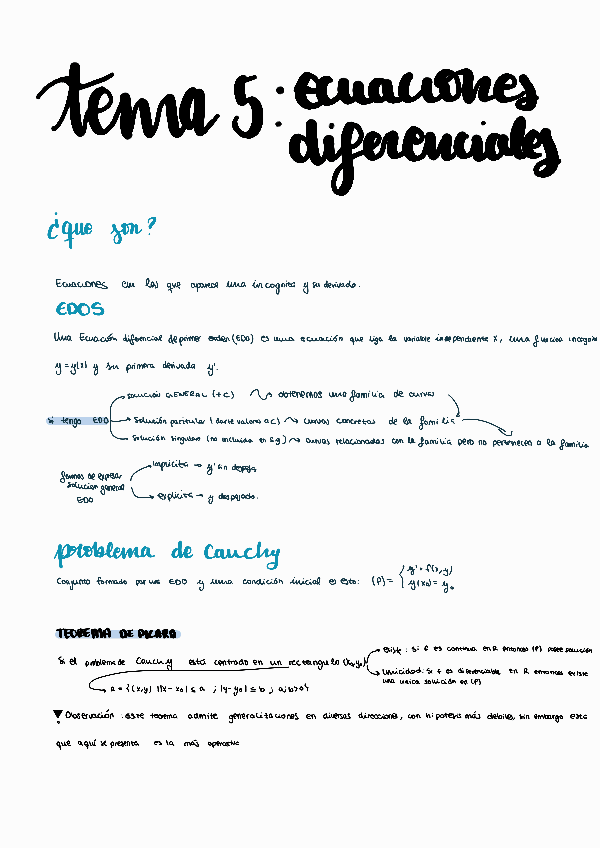 tema 5: ecuaciones
diferenciales
¿que son?
Ecuaciones en las que aparece una incognita y su derivada.
EDOS
Una Ecuación diferencial de primer orden (EDO) es una ecuación que liga la variable independiente x, una funcion incognita
y=y(x) y su primera derivada y'.
si tengo EDO
solución GENERAL (+C) obtenemos una familia de curvas
Solución particular (darle valores a C) curvas concretas de la familia
Solución singular (no incluida en sg) curvas relacionadas con la familia pero no pertenecen a la familia
formas de expresar
solucion general
EDO
implícita → y sin despeje
explícita → y despejada.
problema de Cauchy
Conjunto formado por una EDO y una condición inicial es esto: (P) = { y' = f(x,y)
y(x₀) = y₀
TEOREMA DE PICARD
Si el problema de Cauchy está centrado en un rectangulo (x₀,y₀)
Existe: Si f es continua en R entonces (P) posee solución
Unicidad: Si f es diferenciable en R entonces existe
una unica solución en (P)
R = {(x,y) / |x-x₀| ≤ a ; |y-y₀| ≤ b ; a,b>0}
Observación: este teorema admite generalizaciones en diversas direcciones, con hipotesis más debiles, sin embargo esta
que aquí se presenta es la más operativa